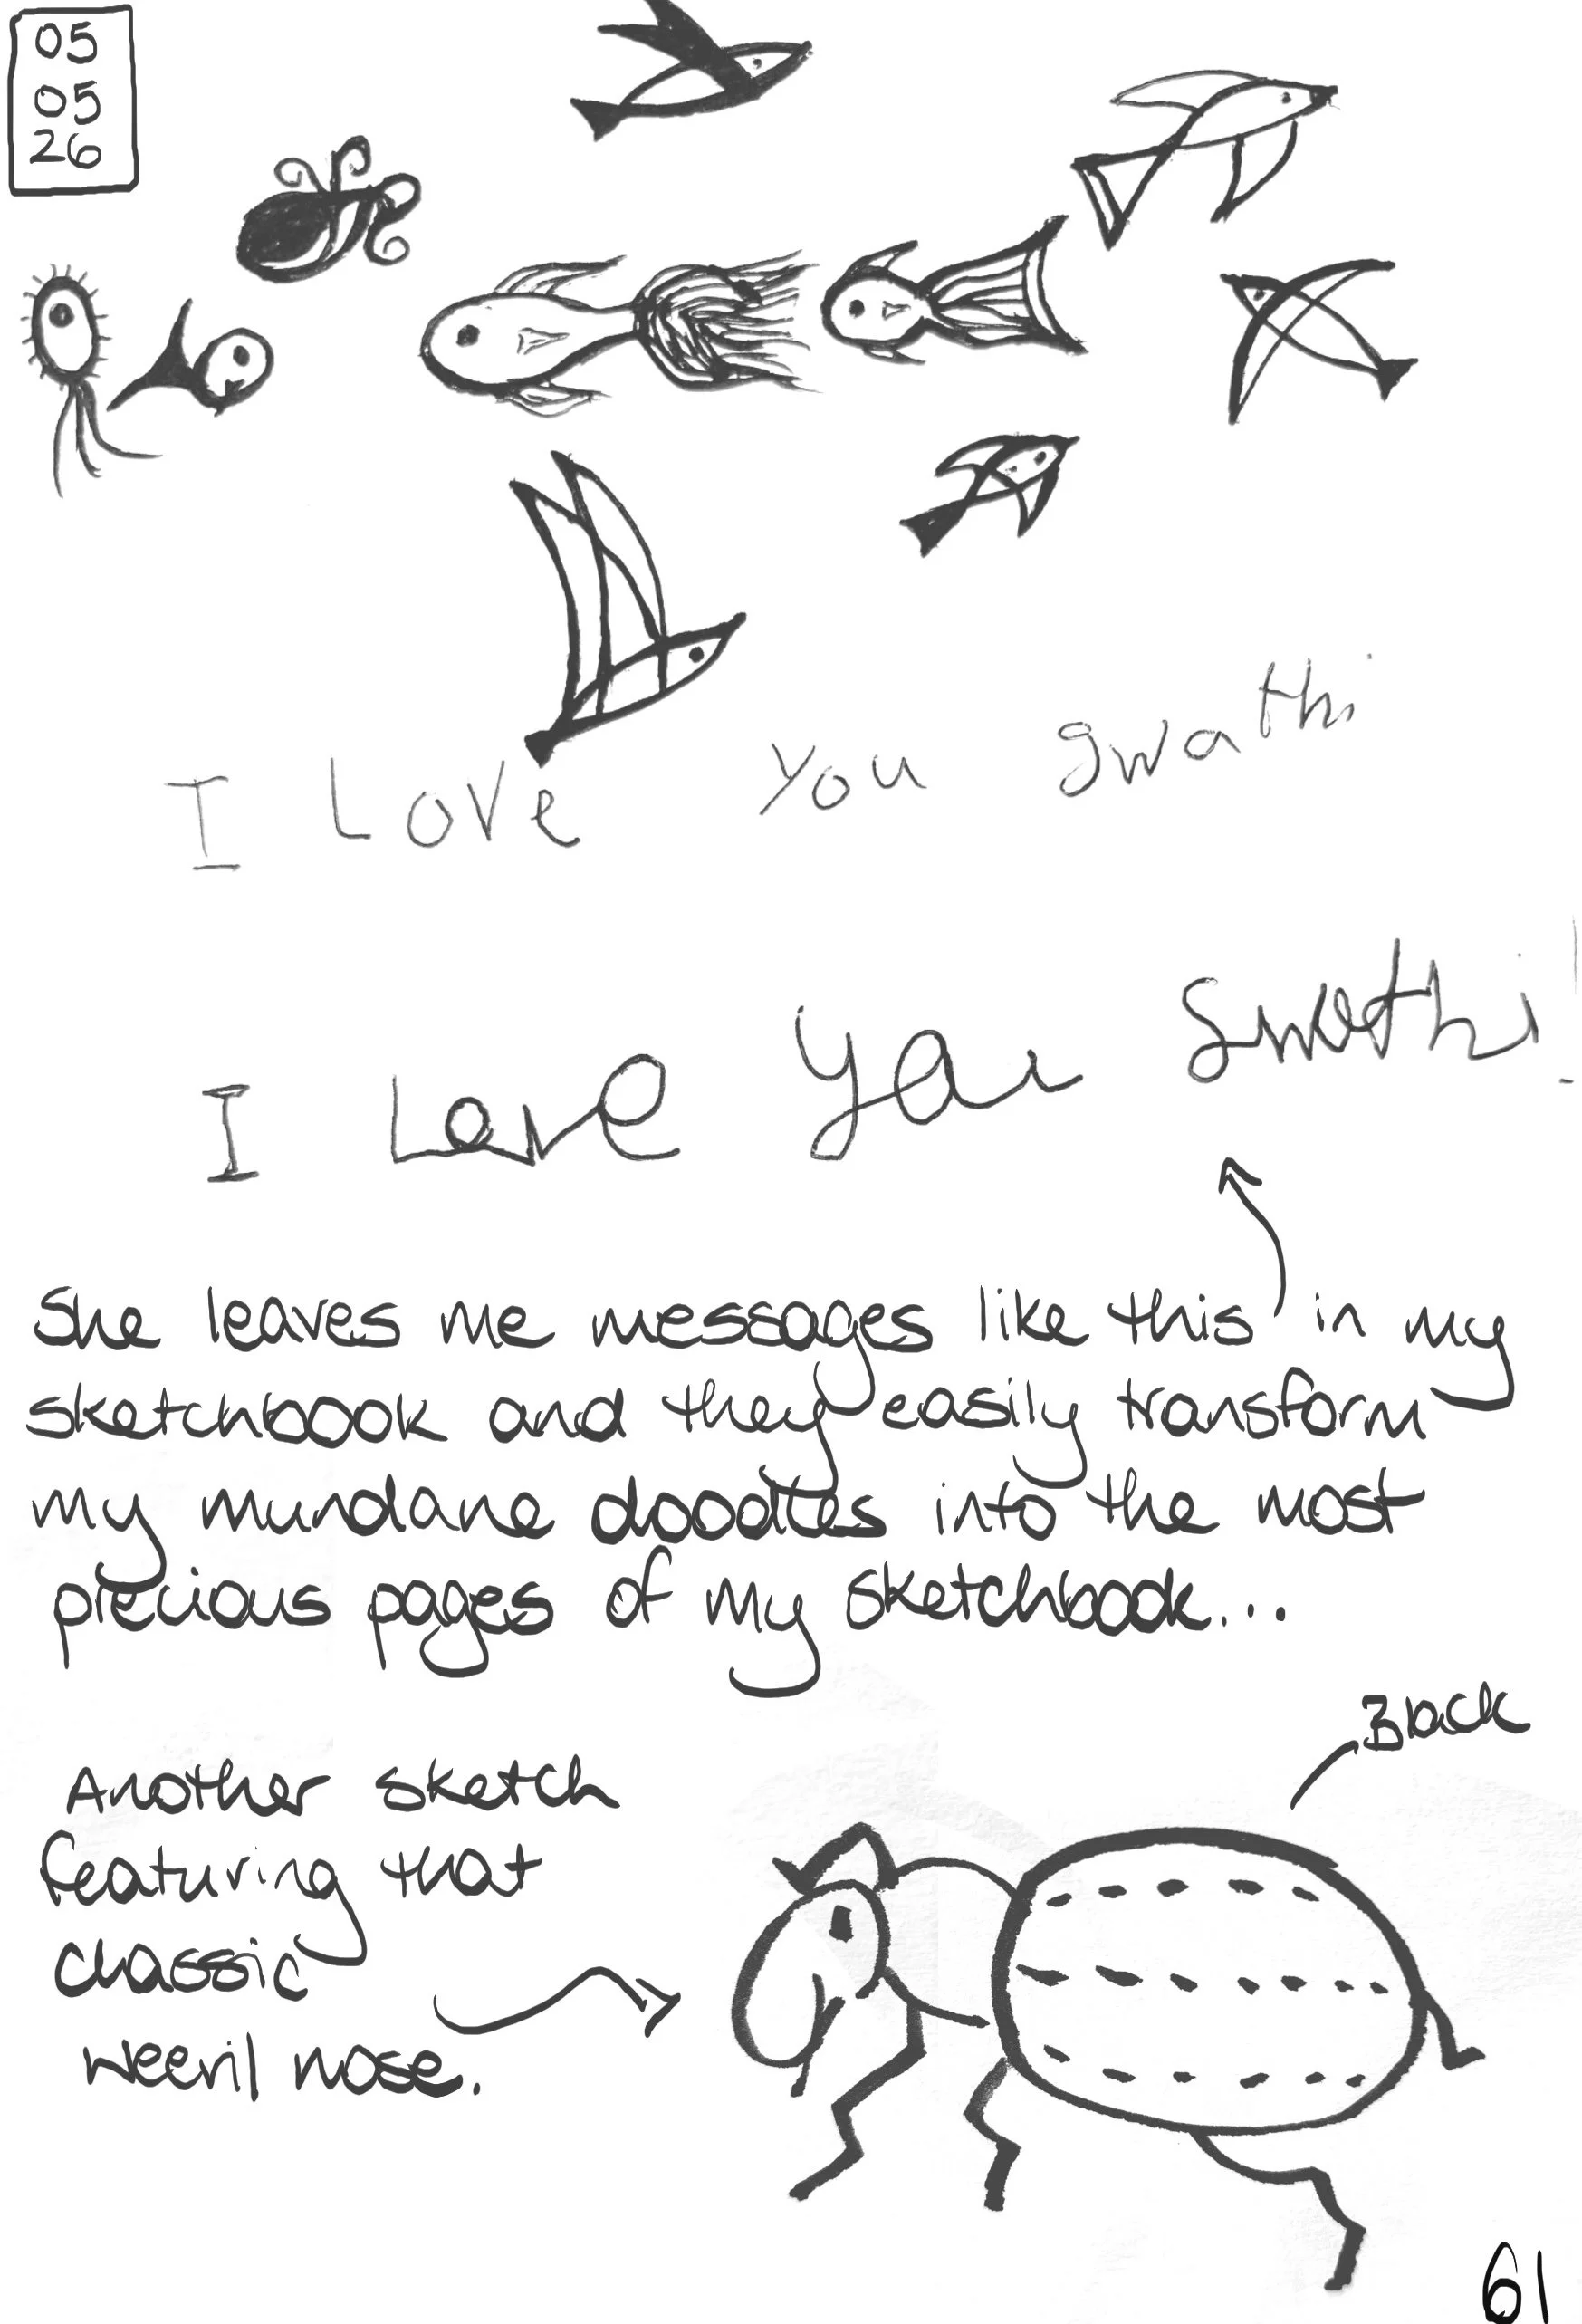 05
05
26
I Love you swathi
I Love you Swathi!
She leaves me messages like this in my
sketchbook and they easily transform
my mundane dooodles into the most
precious pages of my sketchbook...
Black
Another sketch
featuring that
classic
weevil nose.
61